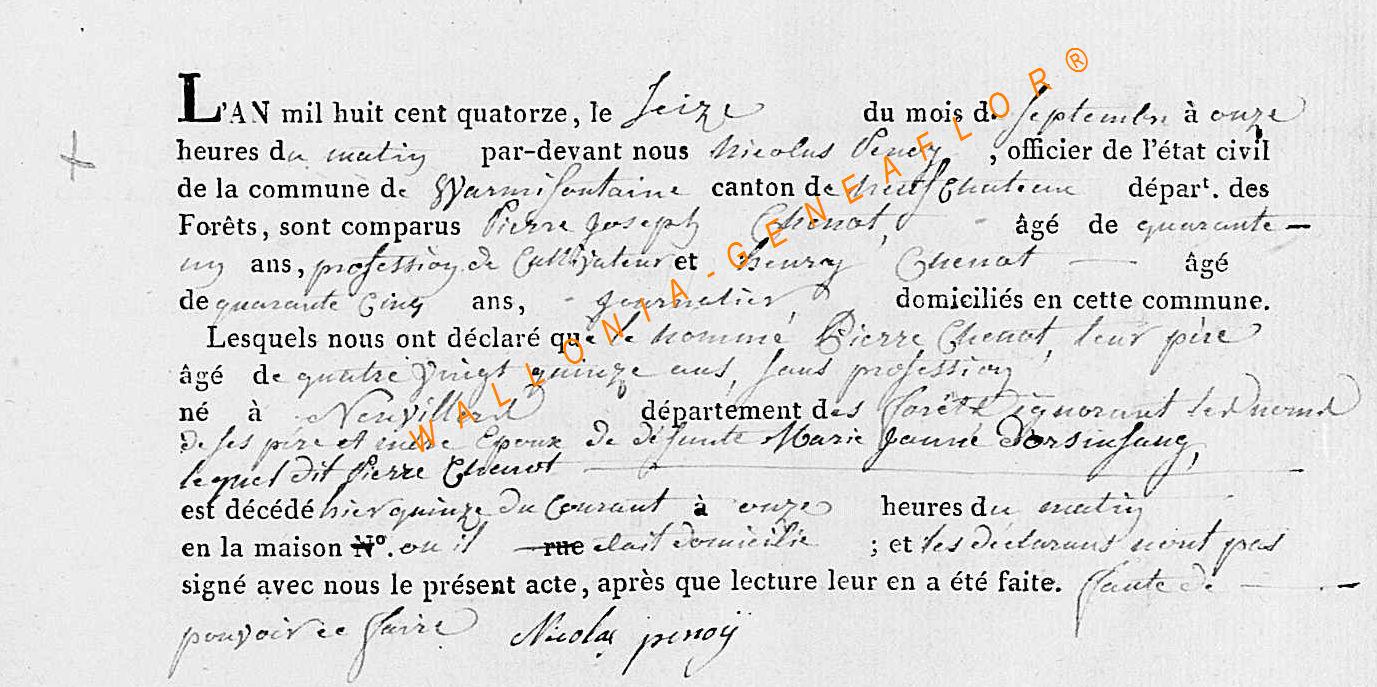 L'AN mil huit cent quatorze, le Seize du mois de Septembre à onze
heures du matin par-devant nous Nicolas Penoy, officier de l'état civil
de la commune de Warmifontaine canton de neufchateau départ. des
Forêts, sont comparus Pierre Joseph Chenot, âgé de quarante
un ans, profession de Cultivateur et henry Chenot âgé
de quarante Cinq ans, journalier, domiciliés en cette commune.
Lesquels nous ont déclaré que le nommé Pierre Chenot, leur père
âgé de quatre vingt quinze ans, sans profession
né à Neuvillers département des forêts ignorant les noms
de ses père et mère Epoux de défunte Marie Jeanne
lequel dit Pierre Chenot
est décédé hier quinze du Courant à onze heures du matin
en la maison N°. ou il rue etait domicilié ; et les déclarans n'ont pas
signé avec nous le présent acte, après que lecture leur en a été faite. faute de
pouvoir le faire Nicolas penoy
WALLONIA-GENEAFLOR®